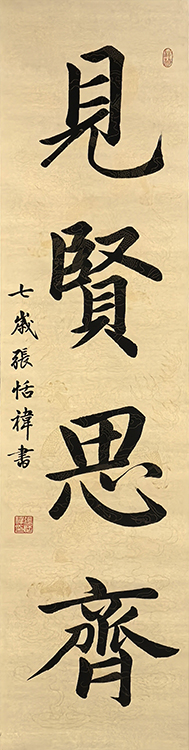 見賢思齊
七歲張恬禕書